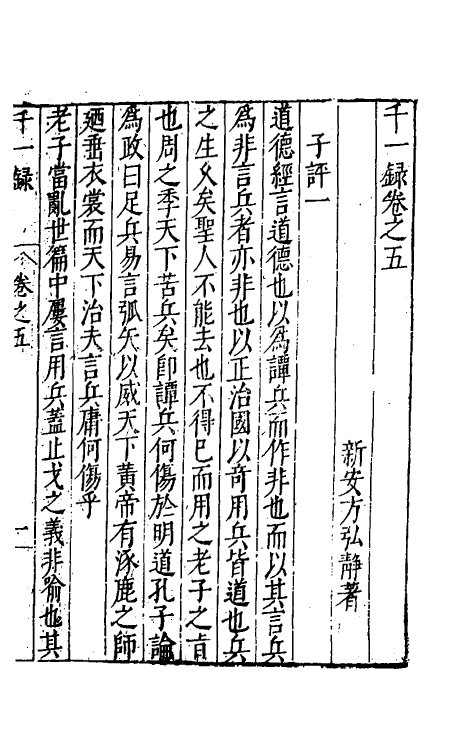 千一録卷之五
新安方弘靜著
子評一
道德經言道德也以為譚兵而作非也而以其言兵
為非言兵者亦非也以正治國以奇用兵皆道也兵
之生久矣聖人不能去也不得已而用之老子之㫖
也周之季天下苦兵矣卽譚兵何傷於明道孔子論
為政曰足兵易言弧矢以威天下黃帝有涿鹿之師
廼垂衣裳而天下治夫言兵庸何傷乎
老子當亂世篇中屢言用兵蓋止戈之義非喻也其
千一録 卷之五 一